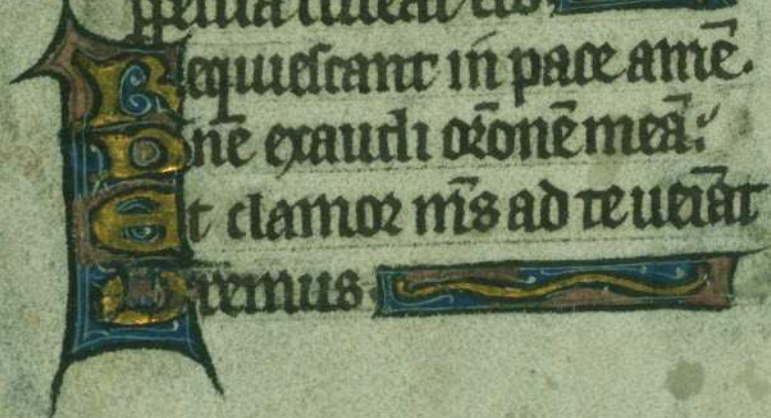 ppetua luceat eis
Requiescant in pace amē.
Dn̄e exaudi or̄onē meā:
Et clamor m̄s ad te ueīat
Oremus